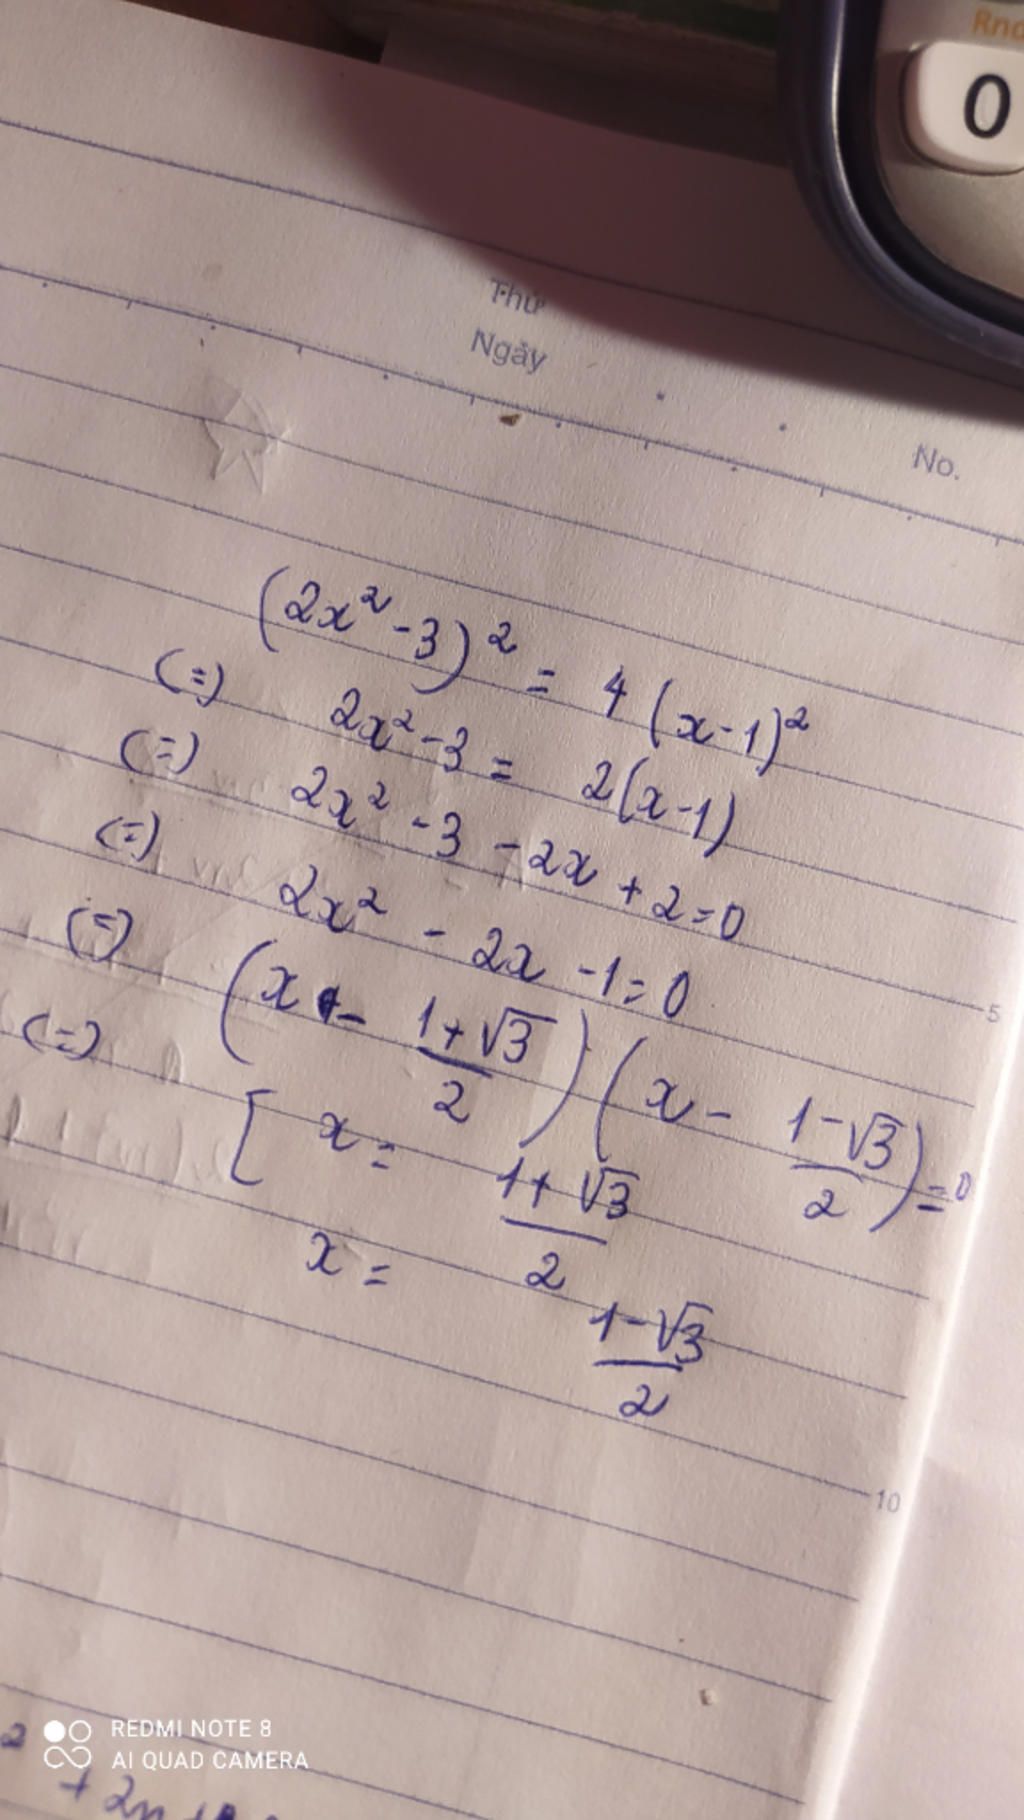 Rnd
0
Thứ
Ngày
No.
(2x² - 3)² = 4(x-1)²
(=) 2x² - 3 = 2(x-1)
(=) 2x² - 3 - 2x + 2 = 0
(=) 2x² - 2x - 1 = 0
5
(=) (x - \frac{1+√3}{2})(x - \frac{1-√3}{2}) = 0
(=) [ x = \frac{1+√3}{2}
x = \frac{1-√3}{2}
10
REDMI NOTE 8
AI QUAD CAMERA
2